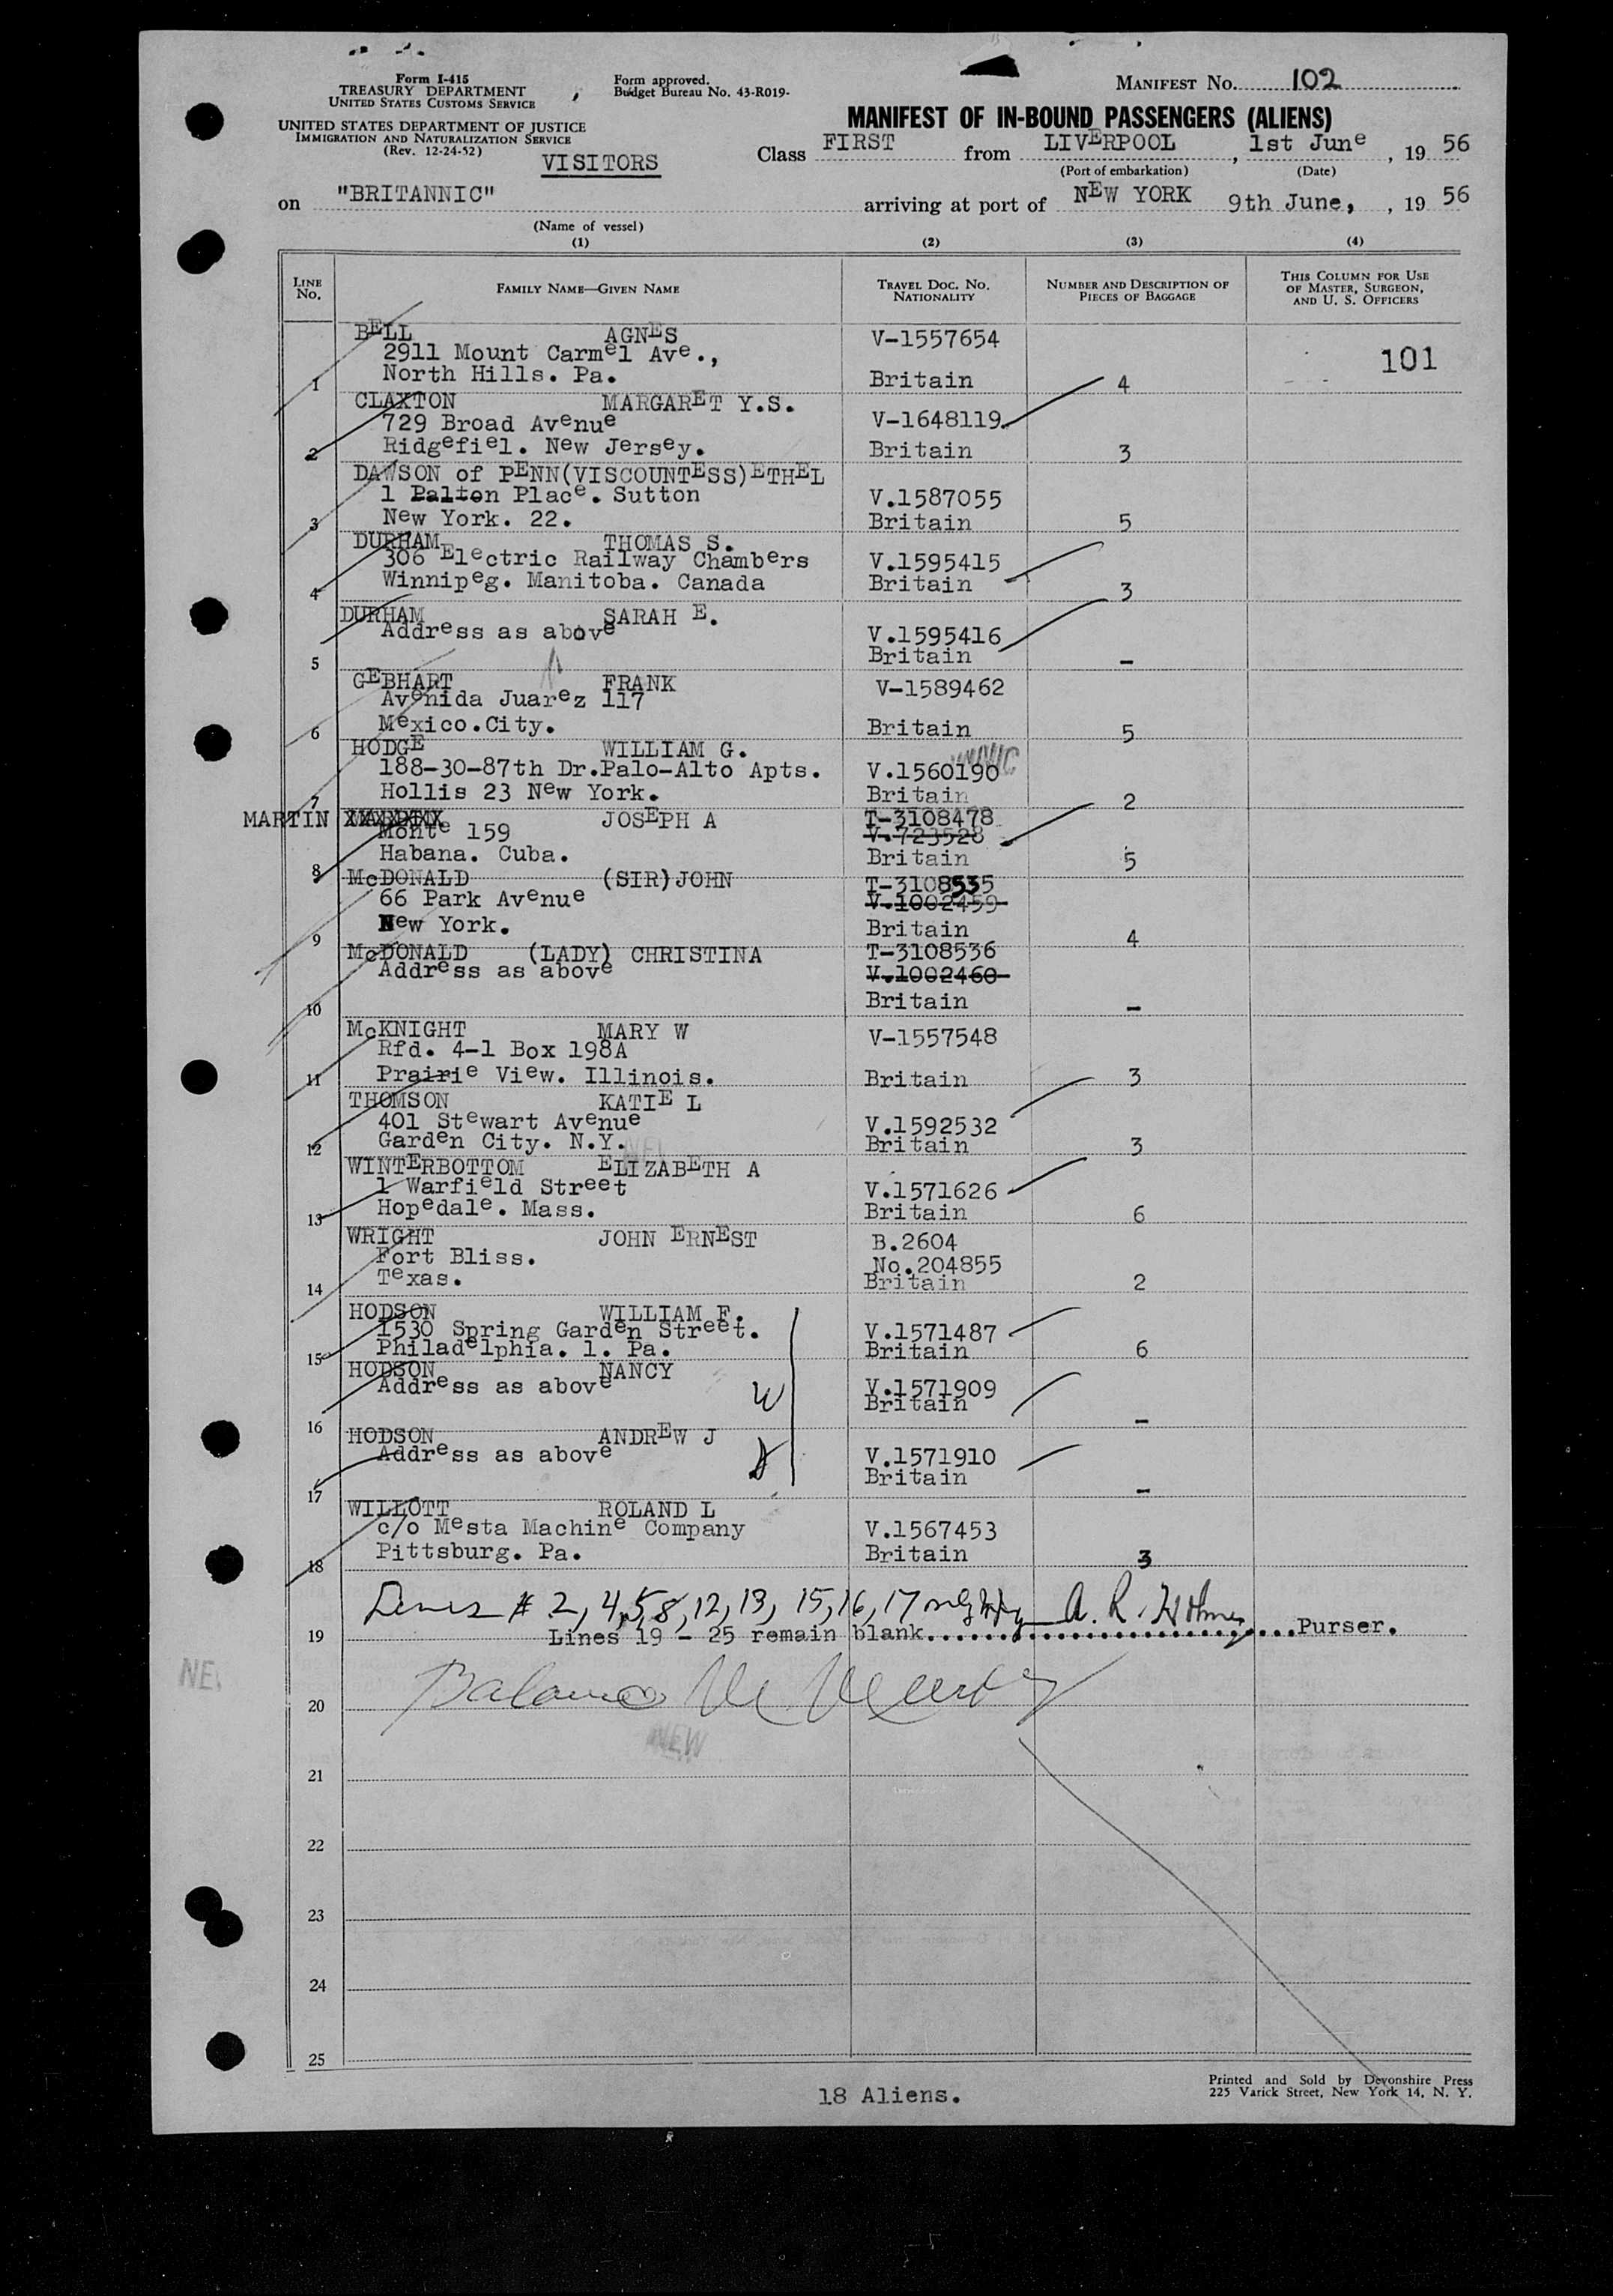 Form I-415
TREASURY DEPARTMENT
UNITED STATES CUSTOMS SERVICE
Form approved.
Budget Bureau No. 43-R019-
MANIFEST NO. 102
UNITED STATES DEPARTMENT OF JUSTICE
IMMIGRATION AND NATURALIZATION SERVICE
(Rev. 12-24-52)
VISITORS
MANIFEST OF IN-BOUND PASSENGERS (ALIENS)
Class FIRST from LIVERPOOL, 1st June, 19 56
(Port of embarkation) (Date)
on "BRITANNIC" arriving at port of NEW YORK 9th June, , 19 56
(Name of vessel)
(1) (2) (3) (4)
LINE NO. FAMILY NAME—GIVEN NAME TRAVEL DOC. NO. NATIONALITY NUMBER AND DESCRIPTION OF PIECES OF BAGGAGE THIS COLUMN FOR USE OF MASTER, SURGEON, AND U. S. OFFICERS
BELL AGNES V-1557654
2911 Mount Carmel Ave., 101
1 North Hills. Pa. Britain 4
CLAXTON MARGARET Y.S.
729 Broad Avenue V-1648119
2 Ridgefiel. New Jersey. Britain 3
DAWSON of PENN(VISCOUNTESS)ETHEL
1 Palton Place. Sutton V.1587055
3 New York. 22. Britain 5
DURHAM THOMAS S.
306 Electric Railway Chambers V.1595415
4 Winnipeg. Manitoba. Canada Britain 3
DURHAM SARAH E.
Address as above V.1595416
5 Britain -
GEBHART FRANK V-1589462
Avenida Juarez 117
6 Mexico.City. Britain 5
HODGE WILLIAM G.
188-30-87th Dr.Palo-Alto Apts. V.1560190
7 Hollis 23 New York. Britain 2
MARTIN JOSEPH A T-3108478
Monte 159 V.723528
8 Habana. Cuba. Britain 5
McDONALD (SIR)JOHN T-3108535
66 Park Avenue V.1002459
9 New York. Britain 4
McDONALD (LADY) CHRISTINA T-3108536
Address as above V.1002460
10 Britain -
McKNIGHT MARY W V-1557548
Rfd. 4-1 Box 198A
11 Prairie View. Illinois. Britain 3
THOMSON KATIE L
401 Stewart Avenue V.1592532
12 Garden City. N.Y. Britain 3
WINTERBOTTOM ELIZABETH A
1 Warfield Street V.1571626
13 Hopedale. Mass. Britain 6
WRIGHT JOHN ERNEST B.2604
Fort Bliss. No.204855
14 Texas. Britain 2
HODSON WILLIAM F.
1530 Spring Garden Street. V.1571487
15 Philadelphia. 1. Pa. Britain 6
HODSON NANCY
Address as above W V.1571909
16 Britain -
HODSON ANDREW J
Address as above V.1571910
17 Britain -
WILLOTT ROLAND L
c/o Mesta Machine Company V.1567453
18 Pittsburg. Pa. Britain 3
Lines # 2, 4, 5, 8, 12, 13, 15, 16, 17 A. R. Holmes
19 Lines 19 - 25 remain blank. Purser.
NEW
20
21
22
23
24
25
18 Aliens.
Printed and Sold by Devonshire Press
225 Varick Street, New York 14, N. Y.